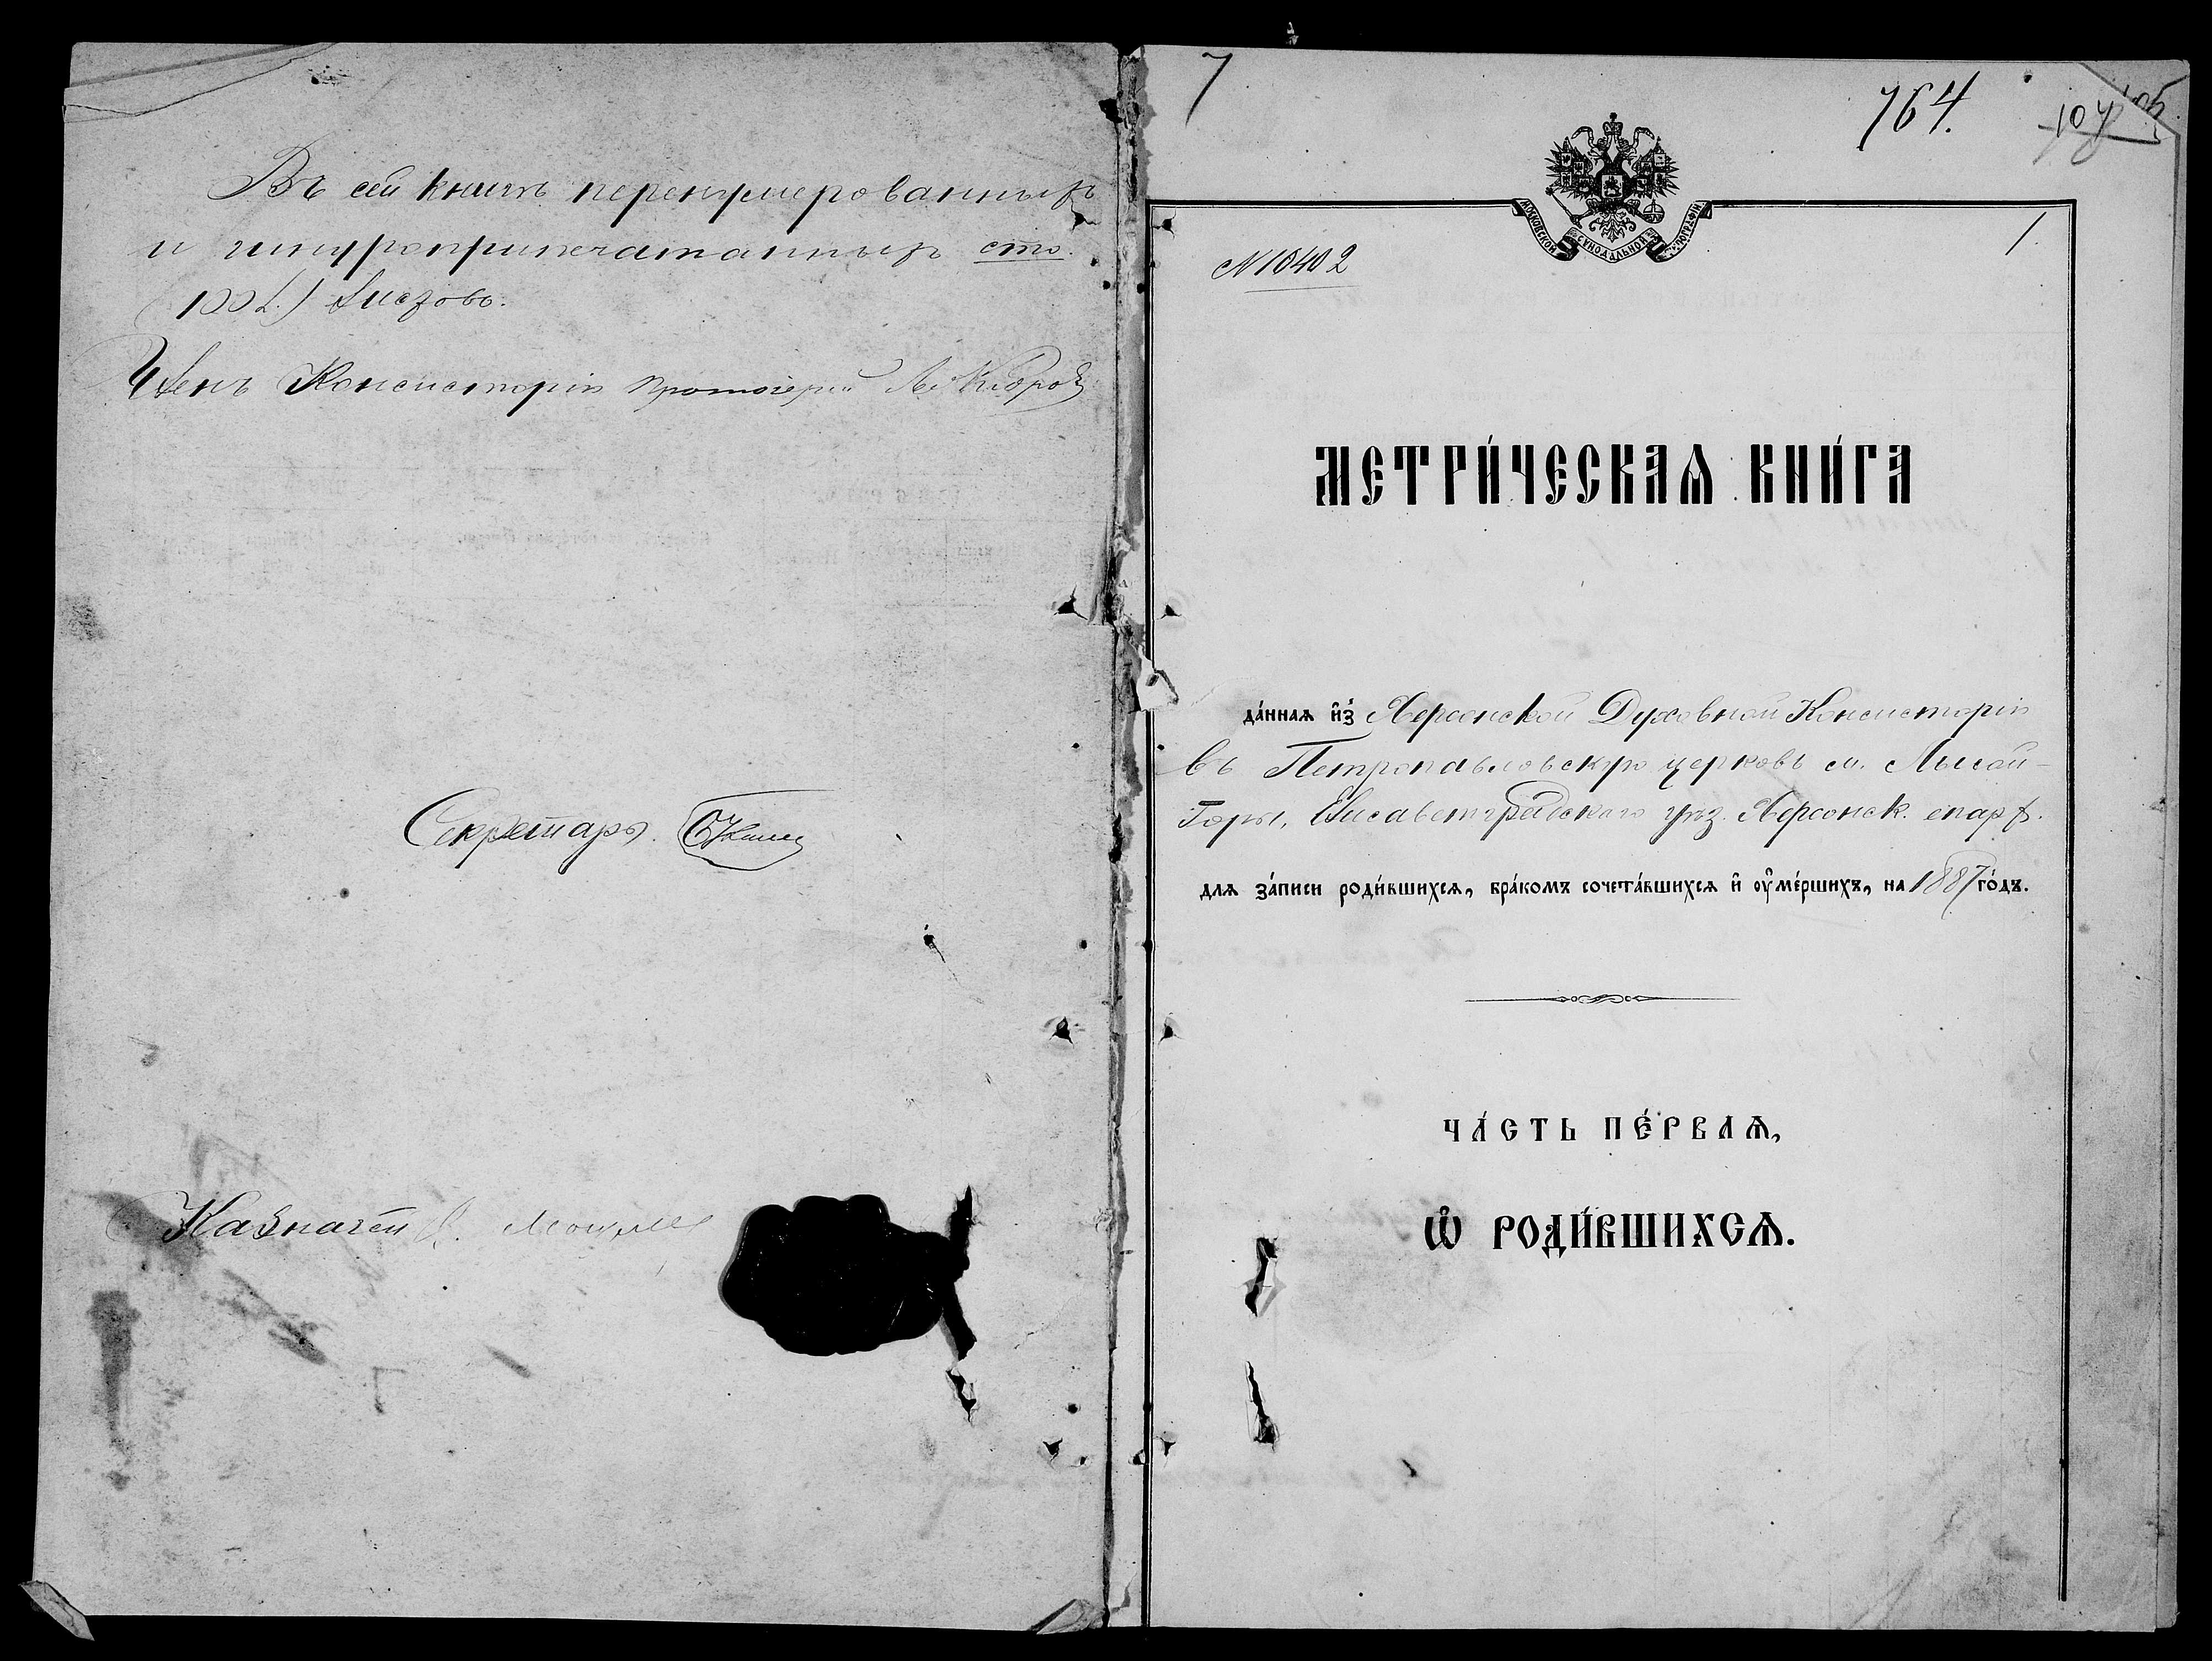 Въ сей книгѣ перенумерованныхъ
и шнуроприпечатанныхъ сто
(100 л.) листовъ.
Членъ Консисторіи Протоіерей
Секретарь
Казначей
7
764.
104
105
МОСКОВСКОЙ СѴНОДАЛЬНОЙ ТИПОГРАФІИ
1.
№ 10402
МЕТРИ́ЧЕСКАѦ КНИ́ГА
да́ннаѧ и҆з̾ Херсонской Духовной Консисторіи
въ Петропавловскую церковь м. Лысой-
Горы, Елисаветградскаго уѣз. Херсонск. епарх.
для за́писи роди́вшихсѧ, бра́комъ сочета́вшихсѧ и҆ ᲂу҆ме́ршихъ, на 1887 го́дъ.
ЧА́СТЬ ПЕ́РВАѦ,
Ѡ҆ РОДИ́ВШИХСѦ.